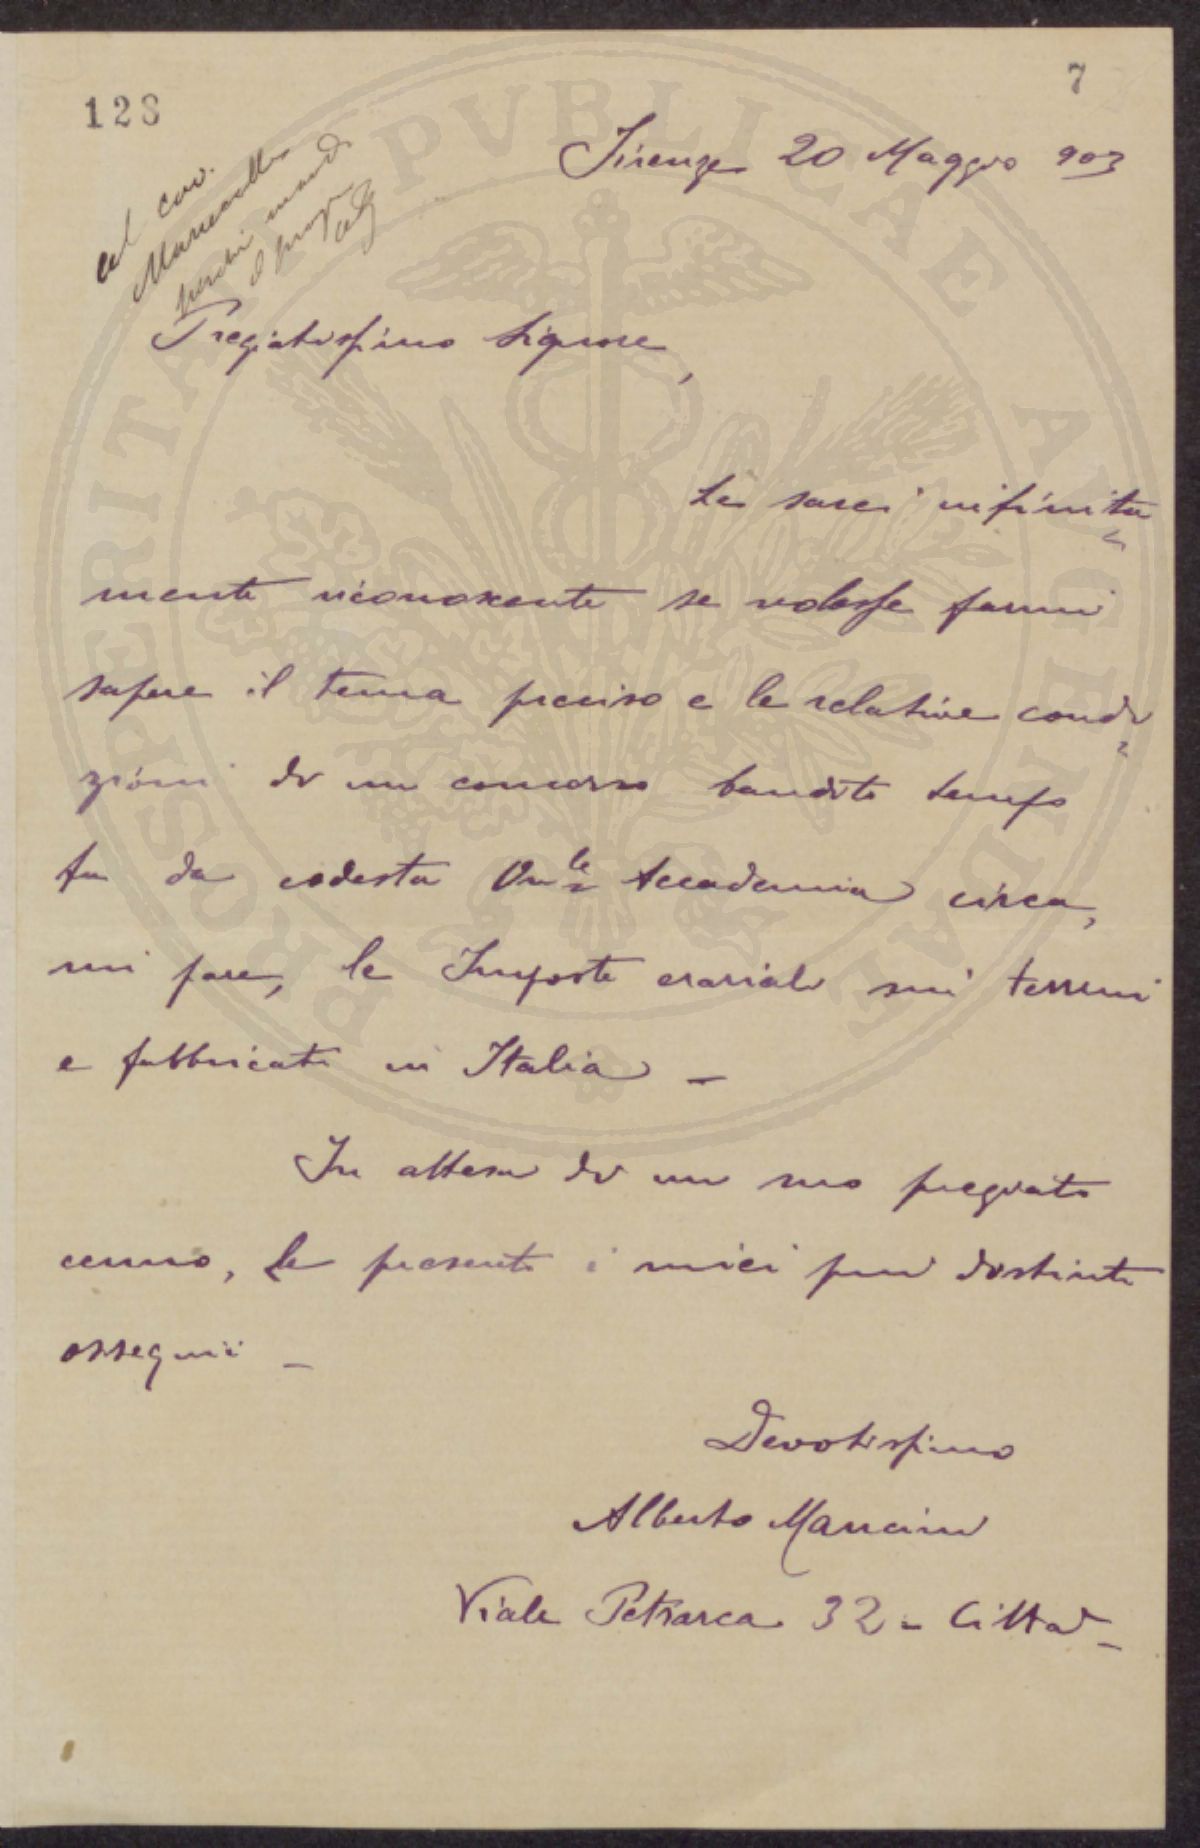 128
7
Firenze 20 Maggio 903
al cav.
perchè mandi
il progr
Pregiatissimo Signore,
Le sarei infinita=
mente riconoscente se volesse farmi
sapere il tema preciso e le relative condi=
zioni di un concorso bandito tempo
fa da codesta On.le Accademia circa,
mi pare, le Imposte erariali sui terreni
e fabbricati in Italia –
In attesa di un suo pregiato
cenno, Le presento i miei più distinti
ossequii –
Devotissimo
Alberto Mancini
Viale Petrarca 32 – Città –
PROSPERITATI PVBLICAE AVGENDAE